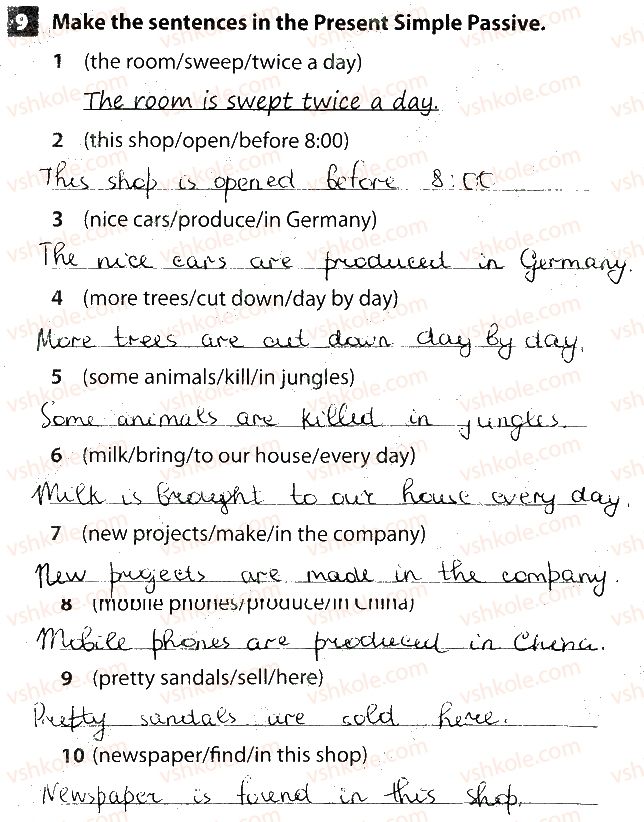 9 Make the sentences in the Present Simple Passive.
1 (the room/sweep/twice a day)
The room is swept twice a day.
2 (this shop/open/before 8:00)
This shop is opened before 8:00
3 (nice cars/produce/in Germany)
The nice cars are produced in Germany.
4 (more trees/cut down/day by day)
More trees are cut down day by day.
5 (some animals/kill/in jungles)
Some animals are killed in jungles.
6 (milk/bring/to our house/every day)
Milk is brought to our house every day.
7 (new projects/make/in the company)
New projects are made in the company.
8 (mobile phones/produce/in China)
Mobile phones are produced in China.
9 (pretty sandals/sell/here)
Pretty sandals are sold here.
10 (newspaper/find/in this shop)
Newspaper is found in this shop.
vshkole.com